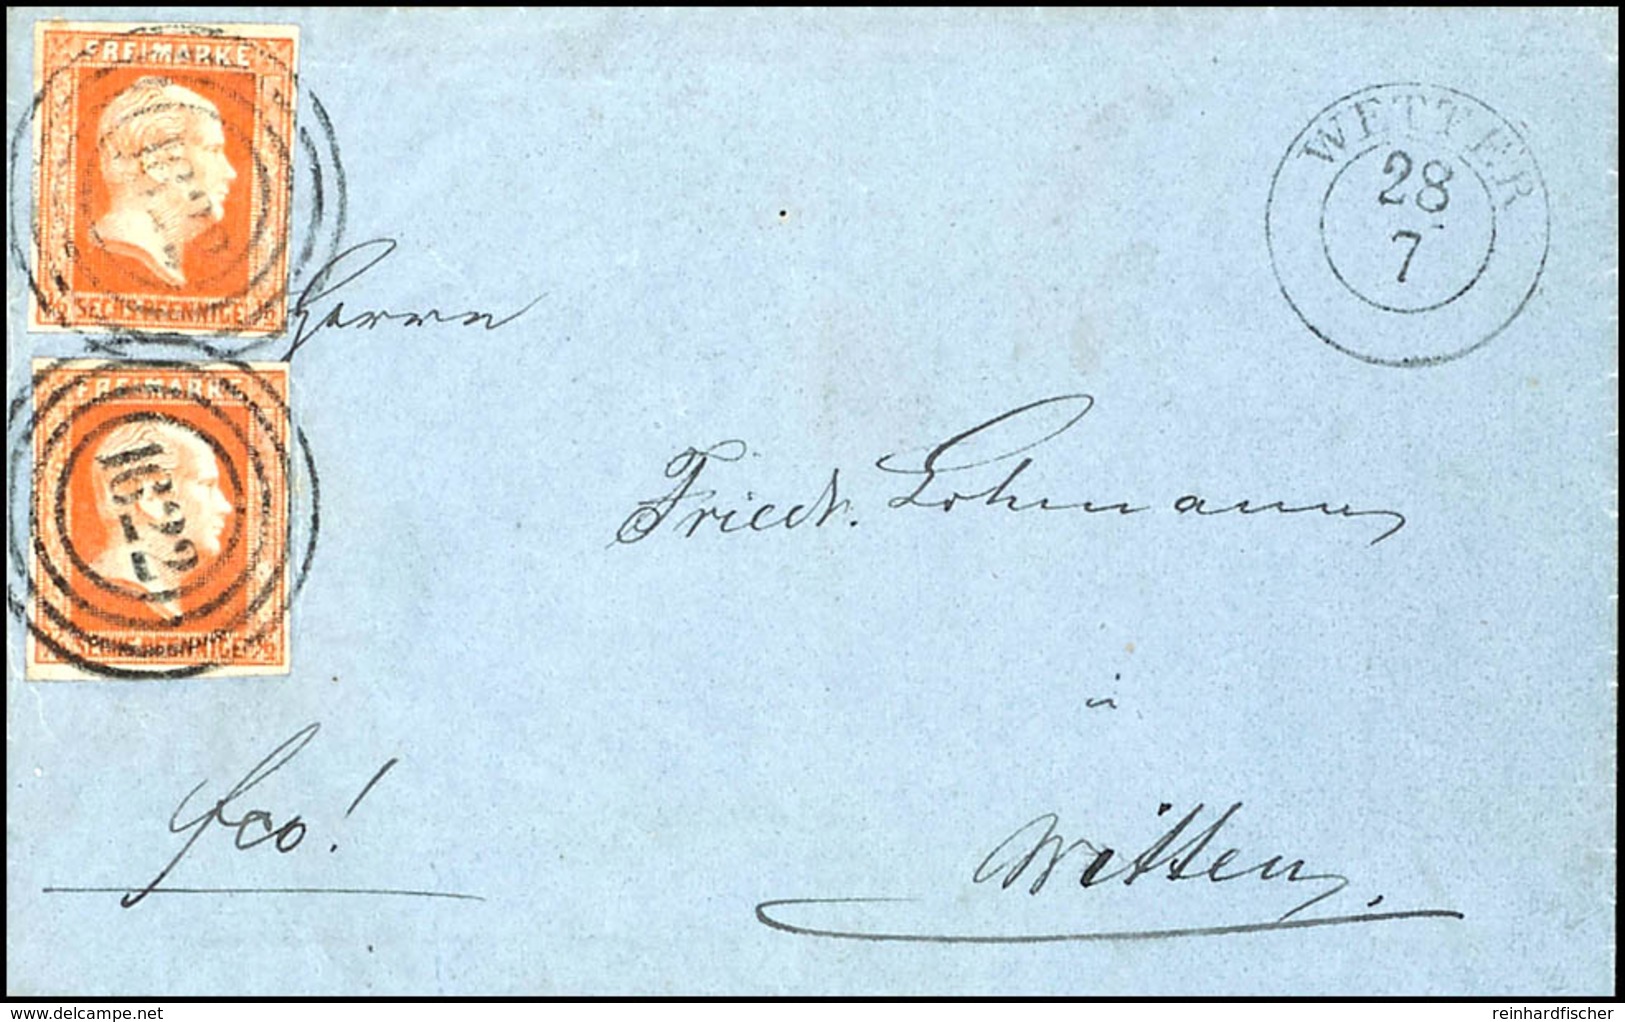 FREIMARKE
1622
SECHS PFENNIGE
WETTER
28
7
Herrn
FREIMARKE
1622
SECHS PFENNIGE
Friedr. Lohmann
in
Witten.
fco!
www.delcampe.net
reinhardfischer